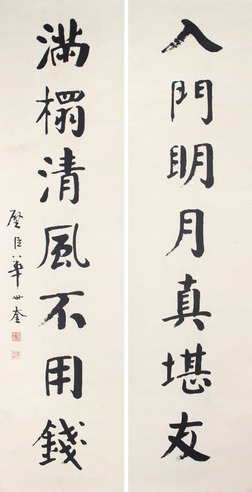 入門明月真堪友
滿榻清風不用錢
璧臣華世奎